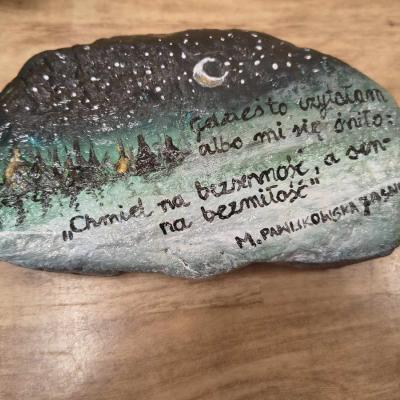 Gdzieś to czytałam
albo mi się śniło:
„Chmiel na bezsenność, a sen-
na bezmiłość”
M. PAWLIKOWSKA JASNO